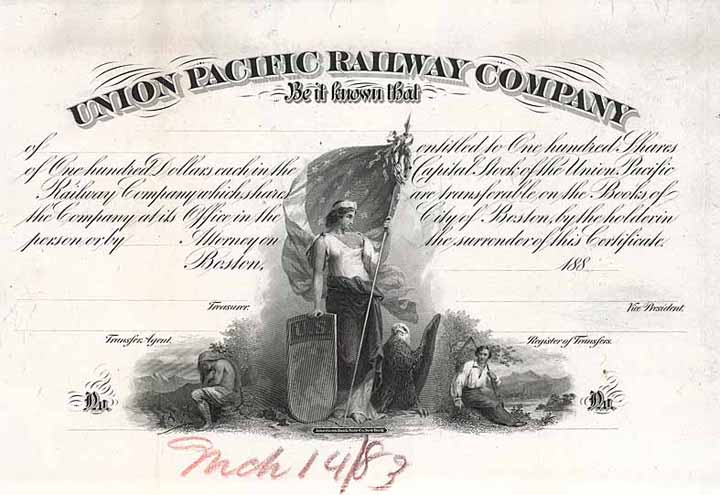 UNION PACIFIC RAILWAY COMPANY
Be it known that
of entitled to One hundred Shares
of One hundred Dollars each in the Capital Stock of the Union Pacific
Railway Company which shares are transferable on the Books of
the Company at its Office in the City of Boston, by the holder in
person or by Attorney on the surrender of this Certificate.
Boston, 188
Treasurer. Vice President.
Transfer Agent. Register of Transfers.
U.S.
No. No.
American Bank Note Co. New York
Mch 14/83